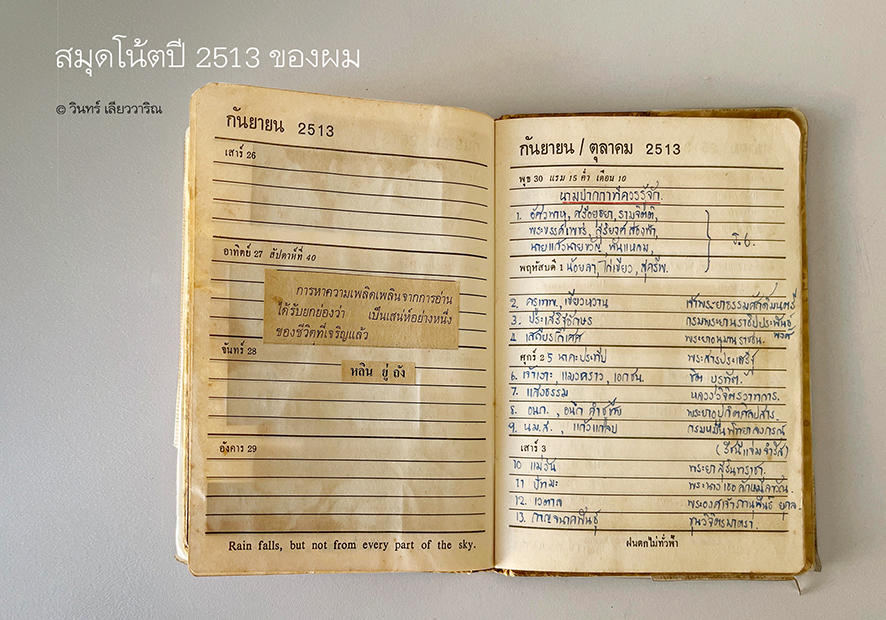 สมุดโน้ตปี 2513 ของผม
© วินทร์ เลียววาริณ
กันยายน 2513
เสาร์ 26
อาทิตย์ 27 สัปดาห์ที่ 40
การหาความเพลิดเพลินจากการอ่าน
ได้รับยกย่องว่า เป็นเสน่ห์อย่างหนึ่ง
ของชีวิตที่เจริญแล้ว
จันทร์ 28
หลิน ยู่ ถัง
อังคาร 29
Rain falls, but not from every part of the sky.
กันยายน / ตุลาคม 2513
พุธ 30 แรม 15 ค่ำ เดือน 10
นามปากกาที่ควรรู้จัก.
1. อัศวพาหุ, ศรีอยุธยา, รามจิตติ,
พระขรรค์เพชร, สุริยงส่องฟ้า,
นายแก้วนายขวัญ, พันแหลม,
ร.6.
พฤหัสบดี 1 น้อยลา, ไก่เขียว, สุครีพ.
2. ครูเทพ, เขียวหวาน เจ้าพระยาธรรมศักดิ์มนตรี
3. ประเสริฐอักษร กรมพระนราธิปประพันธ์
พงศ์
4. เสฐียรโกเศศ พระยาอนุมานราชธน.
ศุกร์ 2 5 นาคะประทีป พระสารประเสริฐ
6. เจ้าเงาะ, แมวคราว, เอกชน. ชิต บุรทัต.
7 แสงธรรม หลวงวิจิตรวาทการ.
8. อนึก คำชูชีพ พระยาอุปกิตศิลปสาร.
9. น.ม.ส., แก้วแกลบ กรมหมื่นพิทยาลงกรณ์
เสาร์ 3 (รัชนีแจ่มจำรัส)
10 แม่วัน พระยาสุรินทราชา.
11 ปัทมะ พระนางเธอลักษมีลาวัณ.
12. เวตาล พระองค์เจ้าภาณุพันธ์ ยุคล.
13. กาญจนาคพันธุ์ ขุนวิจิตรมาตรา.
ฝนตกไม่ทั่วฟ้า